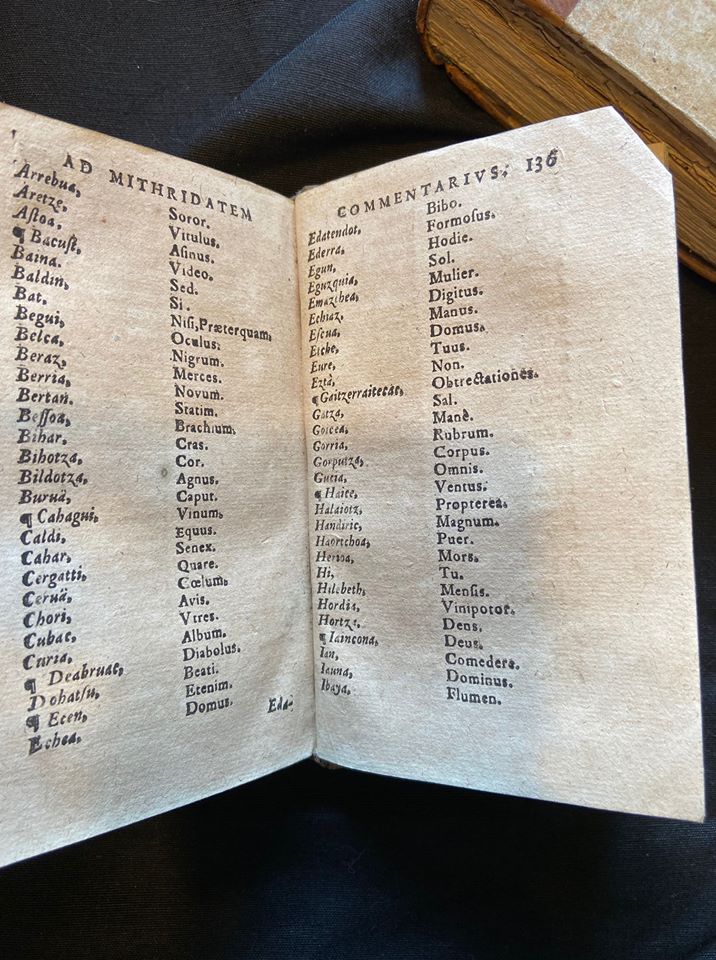 AD MITHRIDATEM
Arrebua, Soror.
Aretze, Vitulus.
Astoa, Asinus.
¶ Bacust, Video.
Baina. Sed.
Baldin, Si.
Bat. Nisi, Præterquam,
Begui, Oculus.
Belca, Nigrum.
Beraz, Merces.
Berria, Novum.
Bertan. Statim.
Bessoa, Brachium.
Bihar, Cras.
Bihotza, Cor.
Bildotza, Agnus.
Buruä, Caput.
¶ Cahagui, Vinum,
Caldi, Equus.
Cahar, Senex.
Cergatti, Quare.
Ceruä, Cœlum,
Chori, Avis.
Cubac, Vtres.
Curia, Album.
¶ Deabruac, Diabolus.
Dohatsu, Beati.
¶ Ecen, Etenim.
Echea, Domus.
Eda-
COMMENTARIVS. 136
Edatendot, Bibo.
Ederra, Formosus.
Egun, Hodie.
Eguzquia, Sol.
Emazthea, Mulier.
Echiaz, Digitus.
Escua, Manus.
Etche, Domus.
Eure, Tuus.
Ezta, Non.
¶ Gaitzerraitecac, Obtrectationes.
Gatza, Sal.
Goicea, Manè.
Gorria, Rubrum.
Gorputza, Corpus.
Gucia, Omnis.
¶ Haice, Ventus.
Halaiotz, Propterea.
Handiric, Magnum.
Haortchoa, Puer.
Herioa, Mors.
Hi, Tu.
Hilebeth, Mensis.
Hordia, Vinipotor.
Hortze, Dens,
¶ Iaincona, Deus.
Ian, Comedere.
Iauna, Dominus.
Ibaya, Flumen.